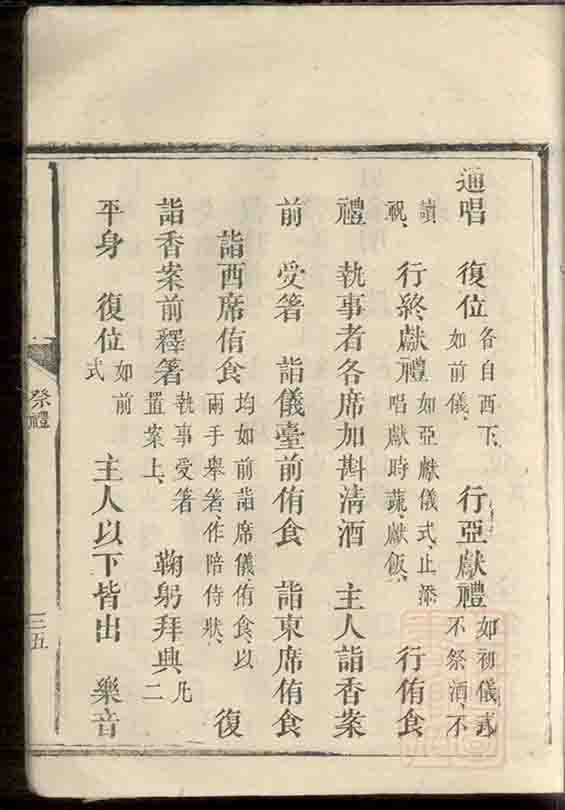 通唱　復位各自西下、如前儀、　行亞獻禮如初儀式不祭酒、不
讀祝、　行終獻禮如亞獻儀式、止添唱獻時蔬、獻飯、　行侑食
禮　執事者各席加斟清酒　主人詣香案
前　受箸　詣儀臺前侑食　詣東席侑食
詣西席侑食均如前詣席儀、侑食、以兩手舉箸、作陪侍狀、　復
詣香案前釋箸執事受箸置案上、　鞠躬拜興凡二
平身　復位如前式　主人以下皆出　樂音
祭禮
三五